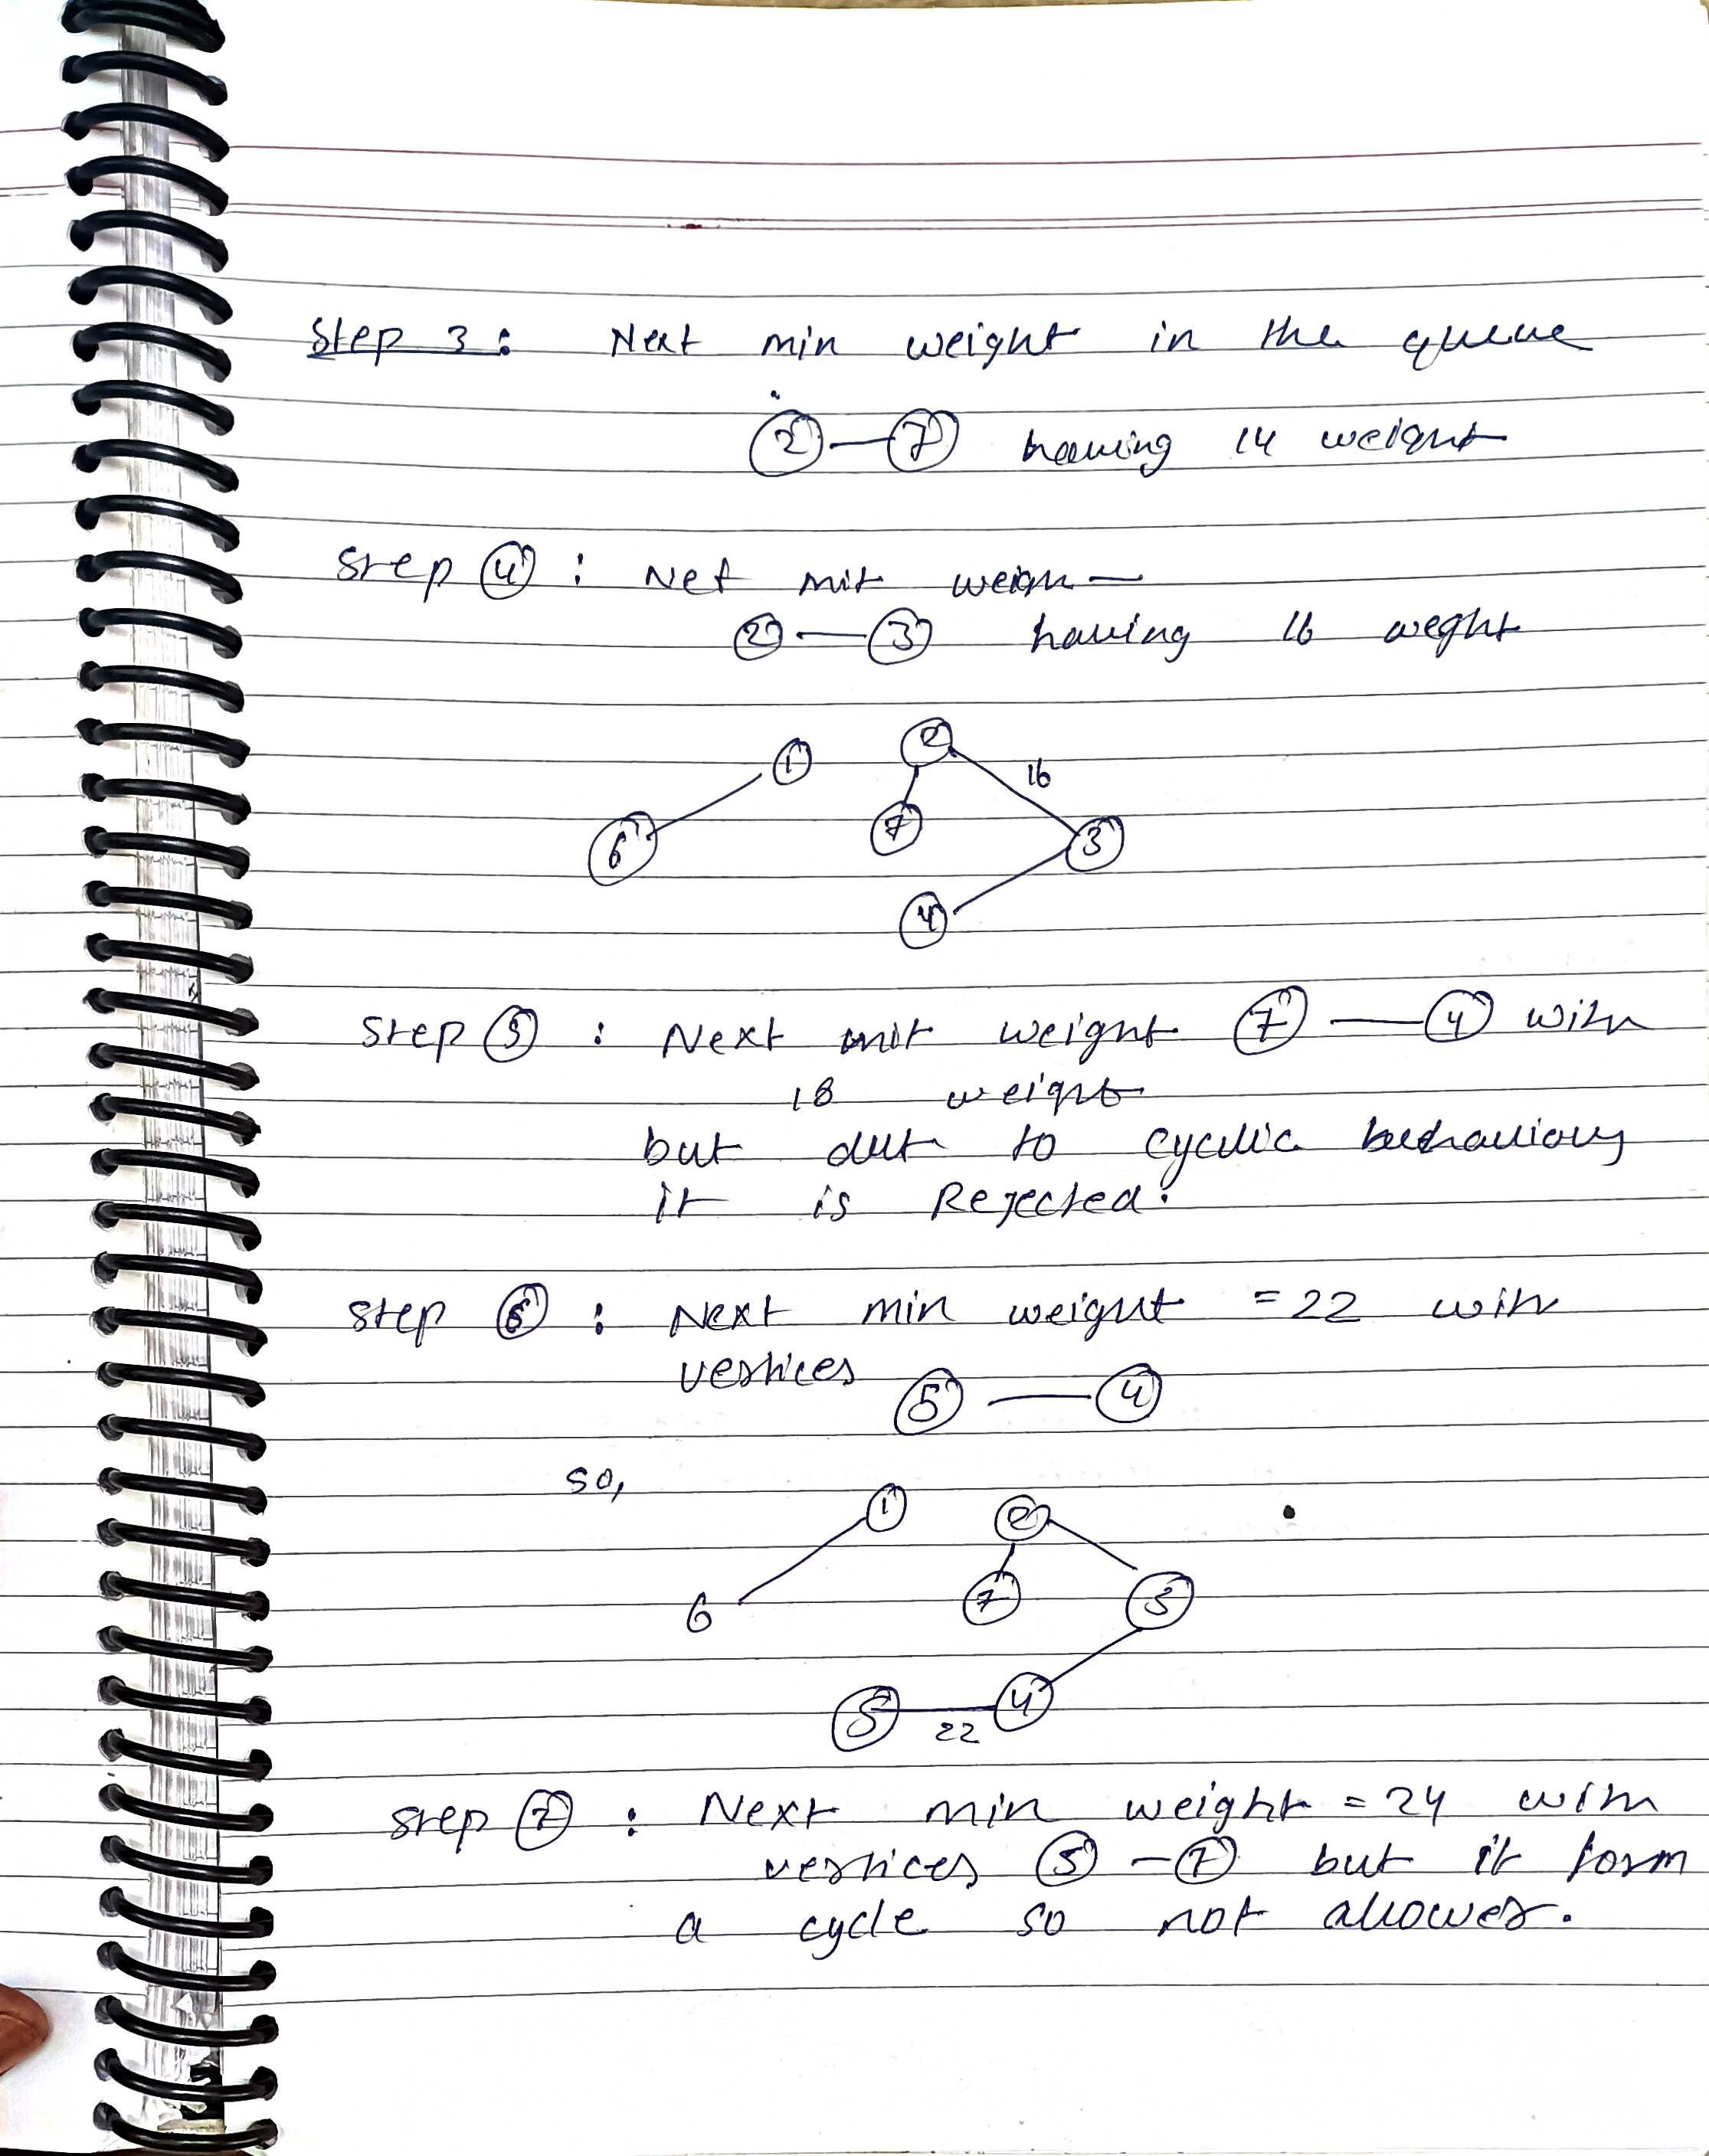 Step 3: Next min weight in the queue
2 — 7 having 14 weight
Step 4 : Net mit weigh
2 — 3 having 16 weght
1 2 16
6 7 3
4
Step 5 : Next mit weight 7 — 4 with
18 weight
but due to cyclic behaviour
it is Rejected.
Step 6 : Next min weight = 22 with
vertices 5 — 4
so,
1 2
6 7 3
5 22 4
Step 7 : Next min weight = 24 with
vertices 5 - 7 but it form
a cycle so not allowed.